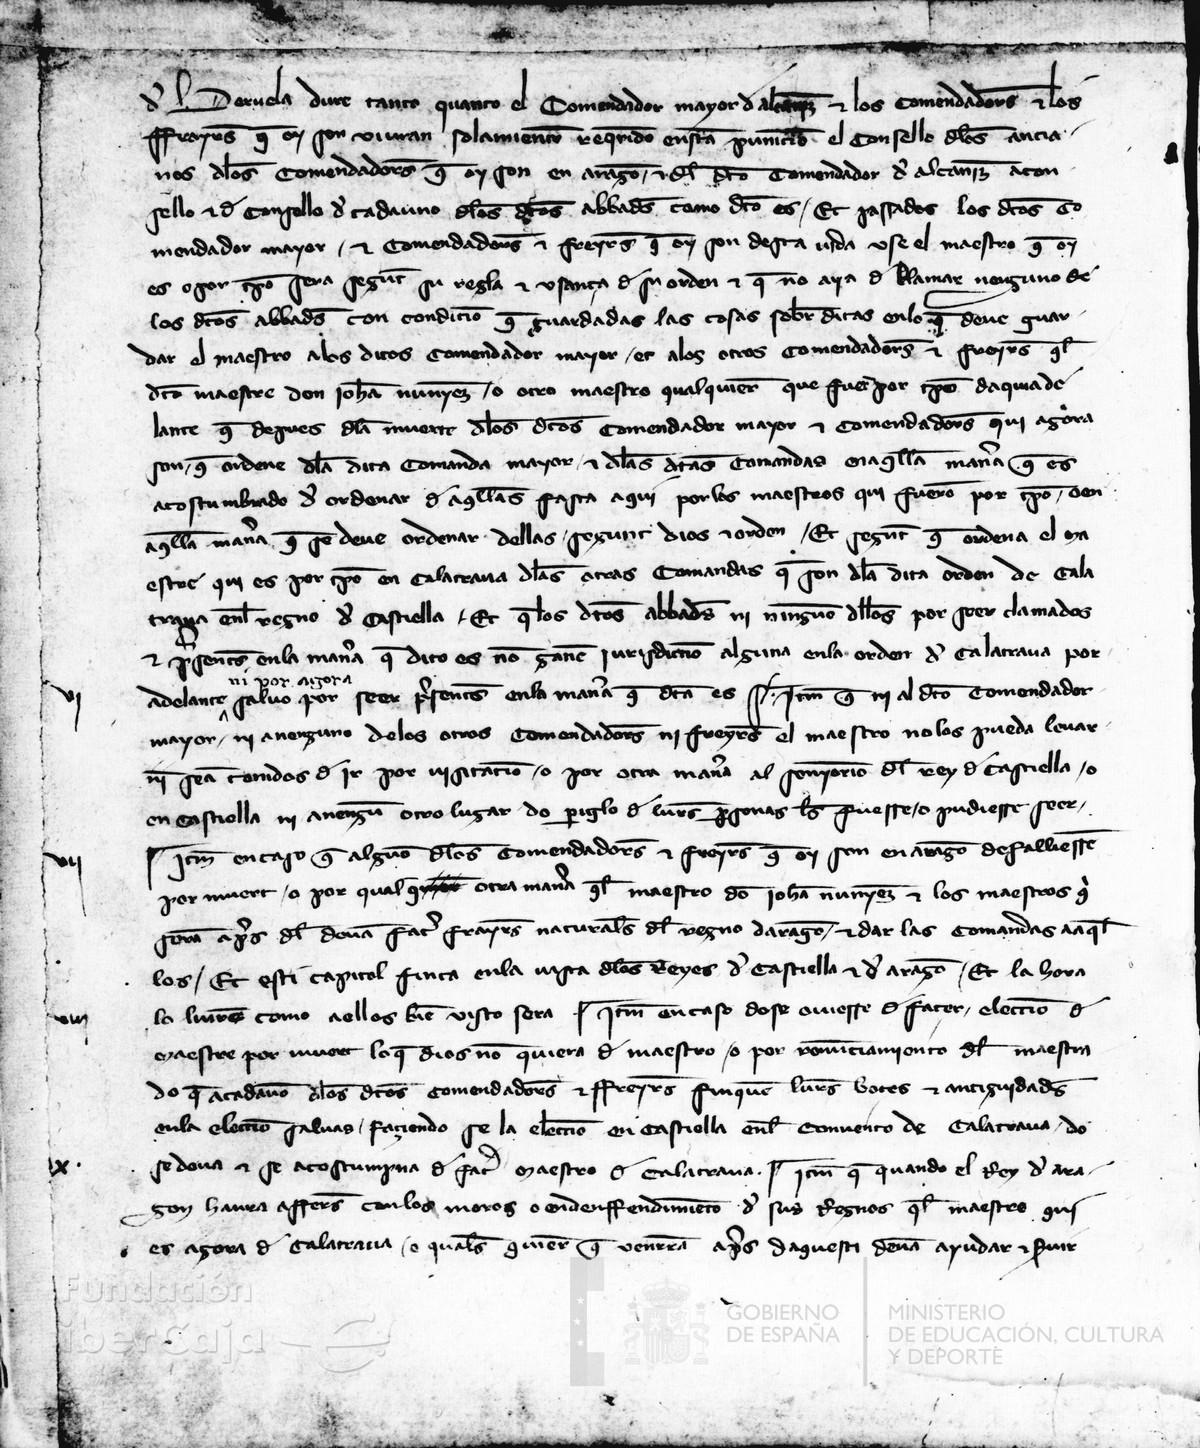 dl Deruela dure tanto quanto el Comendador mayor d alcaniz & los Comendadors & los
ffrayrs q oy son viuran solamientr reqrido ensta punicio el Consello dlos ancia
nos dlos Comendadors q oy son en arago / & dl dto Comendador d alcaniz acon
sello & d Consello d cadauno dlos dtos abbads como dto es / Et passados los dtos Co
mendador mayor / & Comendadors & freyrs q oy son desta uida vse el maestro q oy
es o por tpo sera segunt su regla & vsança d su orden & q no aya d llamar nenguno de
los dtos abbads con condicio q guardadas las cosas sobr ditas enlo q deue guar
dar el maestro alos ditos Comendador mayor / et alos otros Comendadors & freyrs ql
dto maestre don Joha nunyez / o otro maestro qualquier que fuer por tpo daquiade
lante q depues dla muert dlos dtos Comendador mayor & Comendadors qui agora
son / q ordene dla dita Comanda mayor / & dlas dtas Comandas enaqlla manra q es
acostumbrado d ordenar d aqllas fasta aqui porlos maestros qui fuero por tpo / o en
aqlla manra q se deue ordenar dellas / segunt dios & orden / Et segunt q ordena el ma
estre qui es por tpo en Calatraua dlas otras Comandas q son dla dita orden de Cala
traua enl regno d Castiella / Et qlos dtos abbads ni ninguno dllos por seer clamados
& psents enla manra q dito es no gane jurisdiction alguna enla orden d Calatraua por
ni por agora
vi adelante salvo por seer psents enla manra q dta es / Itm q ni al dto Comendador
mayor / ni anenguno delos otros Comendadors ni freyrs el maestro nolos pueda leuar
ni sea tenidos d ir por visitacio / o por otra manra al senyorio dl Rey d Castiella / o
en Castiella ni anengu otro lugar do piglo d lurs psonas ls fuesse / o pudiesse seer /
vii Itm encaso q alguno dlos Comendadors & freyrs q oy son en arago defalliesse
por muert / o por qual otra manra ql maestro do Joha nunyez & los maestros q
sera aps dl deua facr frayrs naturals dl regno darago / & dar las Comandas aaql
los / Et esti capitol finca enla vista dlos Reyes d Castiella & d arago / Et la hora
viii lo liurs como aellos bie visto sera Itm encaso dose ouiesse d facer / eleccio d
maestre por muert lo q dios no quiera d maestro / o por renunciamiento dl maestra
do q acadauno dlos dtos Comendadors & ffreyrs finque lurs botes & antiguidads
enla eleccio saluas / faziendo se la eleccio en Castiella enl Conuento de Calatraua / do
ix se deua & se acostumpna d facr maestro d Calatraua . Itm q quando el Rey d ara
gon haura affers con los moros o endeffendimieto d sus Regnos ql maestro qui
es agora d Calatraua / o quals quier q venrra aps daquesti deua ayudar & suir
Fundación
iberCaja
GOBIERNO
DE ESPAÑA
MINISTERIO
DE EDUCACIÓN, CULTURA
Y DEPORTE